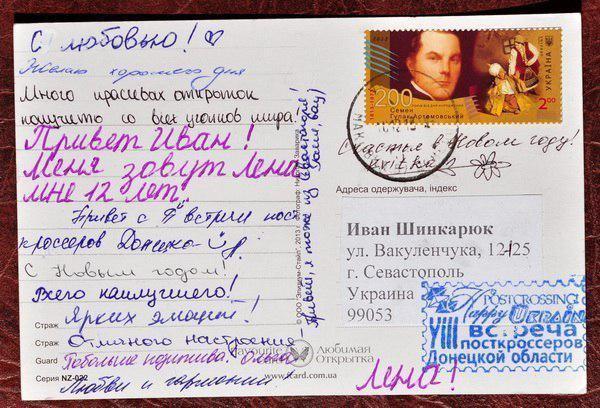 С любовью!
Желаю хорошего дня
Много красивых открыток
получить со всех уголков мира!
Привет Иван!
Меня зовут Лена
мне 12 лет.
Привет с 8й встречи пост
кроссеров Донецка
С Новым годом!
Всего наилучшего!
Ярких эмоций!
Страж
Отличного настроения
Guard
Побольше позитива. Ольга
Серия NZ-022
Любви и гармонии
© ООО "Эпидиум-Стайл", 2013 г.
Favourite Любимая
Открытка
www.fcard.com.ua
200
Семен
Гулак-Артемовський
УКРАЇНА
2.00
Счастья в Новом году!
Адреса одержувача, індекс
Иван Шинкарюк
ул. Вакуленчука, 12/25
г. Севастополь
Украина
99053
POSTCROSSING
Happy UKRAINE
VIII встреча
посткроссеров
Донецкой области
Лена!